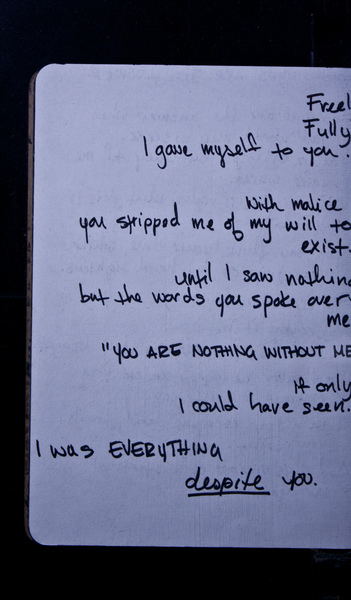 Freel
Fully
I gave myself to you.
With malice
you stripped me of my will to
exist.
until I saw nothing
but the words you spoke over
me
"YOU ARE NOTHING WITHOUT ME
If only
I could have seen.
I was EVERYTHING
despite you.